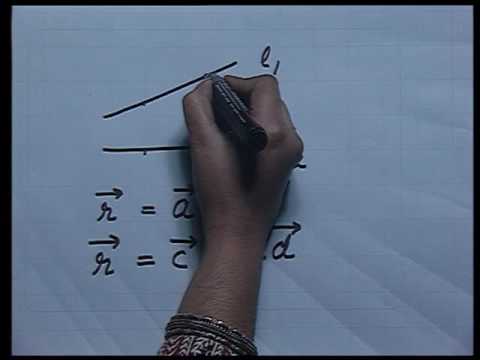 l₁
r⃗ = a⃗
r⃗ = c⃗ d⃗